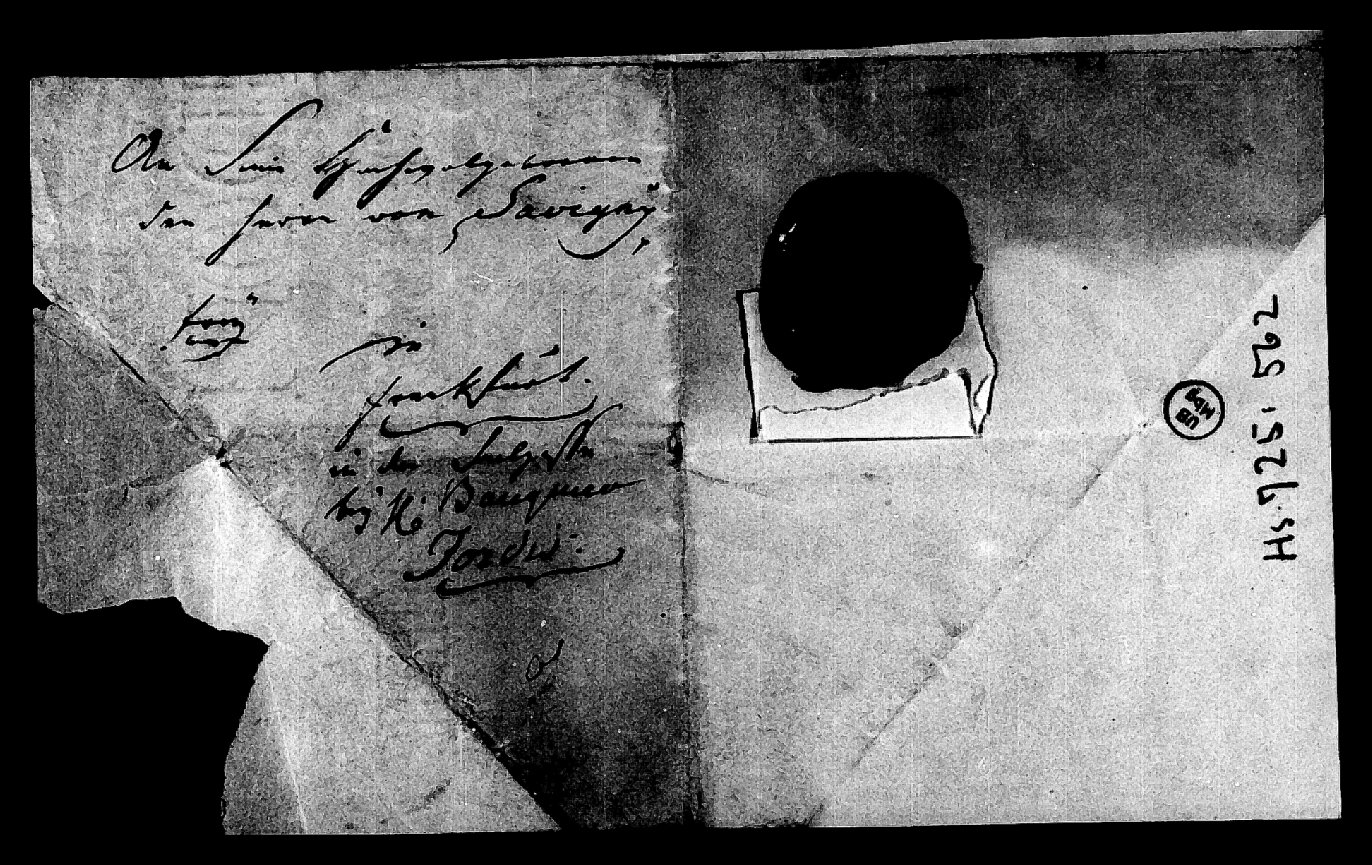 An Seine Hochwolgeboren
den Herrn von Savigny,
frey
in
Frankfurt.
in der
bey H: Banquier
Jordis.
UB
Mbg
Hs. 725: 562